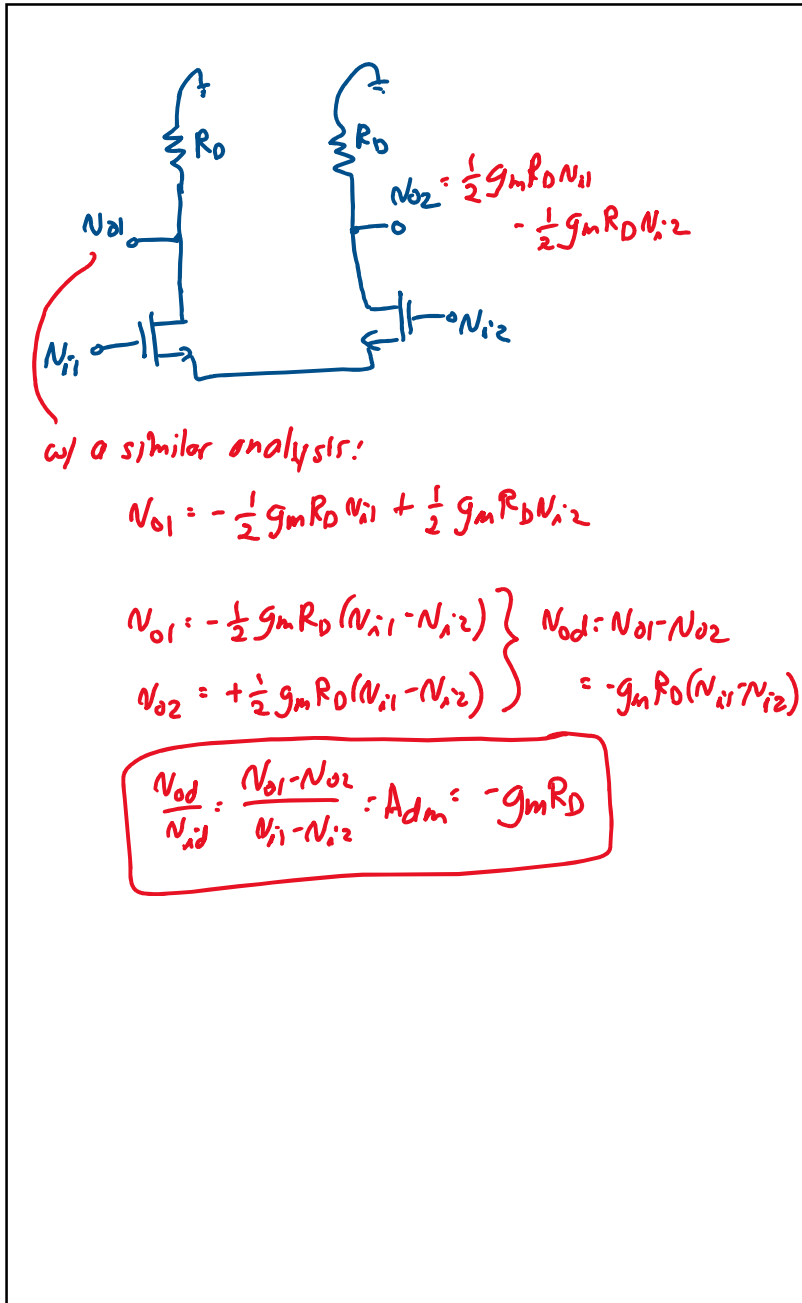 R_D R_D
v_o2 = 1/2 g_m R_D v_i1
- 1/2 g_m R_D v_i2
v_o1
v_i1
v_i2
w/ a similar analysis:
v_o1 = - 1/2 g_m R_D v_i1 + 1/2 g_m R_D v_i2
v_o1 = - 1/2 g_m R_D (v_i1 - v_i2) } v_od = v_o1 - v_o2
v_o2 = + 1/2 g_m R_D (v_i1 - v_i2) = -g_m R_D (v_i1 - v_i2)
v_od/v_id = (v_o1 - v_o2)/(v_i1 - v_i2) = A_dm = -g_m R_D